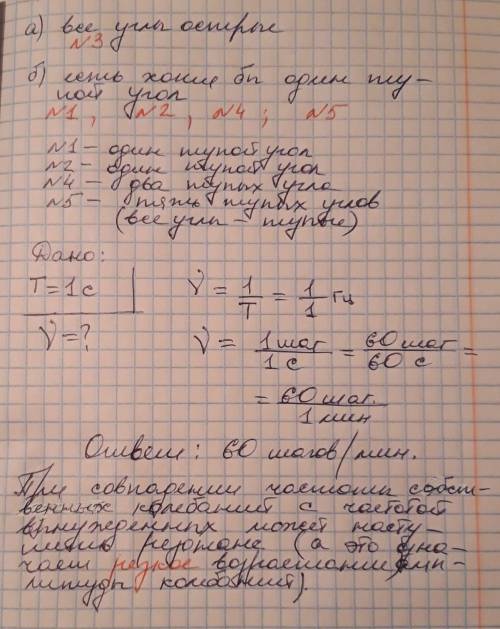 а) все углы острые
№3
б) есть хотя бы один ту-
пой угол
№1, №2, №4; №5
№1 – один тупой угол
№2 – один тупой угол
№4 – два тупых угла
№5 – пять тупых углов
(все углы – тупые)
Дано:
T = 1 с
ν = ?
ν = 1/T = 1/1 Гц
ν = 1 шаг/1 с = 60 шаг/60 с =
= 60 шаг./1 мин
Ответ: 60 шагов/мин.
При совпадении частоты собст-
венных колебаний с частотой
вынужденных может насту-
пить резонанс (а это озна-
чает резкое возрастание амп-
литуды колебаний).